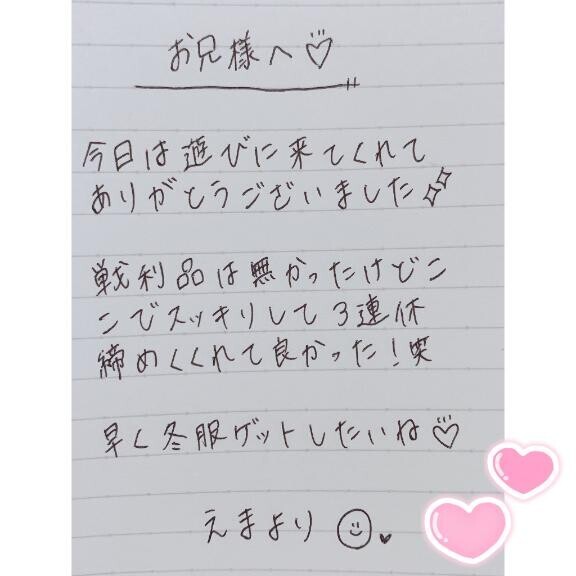 お兄様へ♡
今日は遊びに来てくれて
ありがとうございました✨
戦利品は無かったけどこ
こでスッキリして3連休
締めくくれて良かった!笑
早く冬服ゲットしたいね♡
えまより